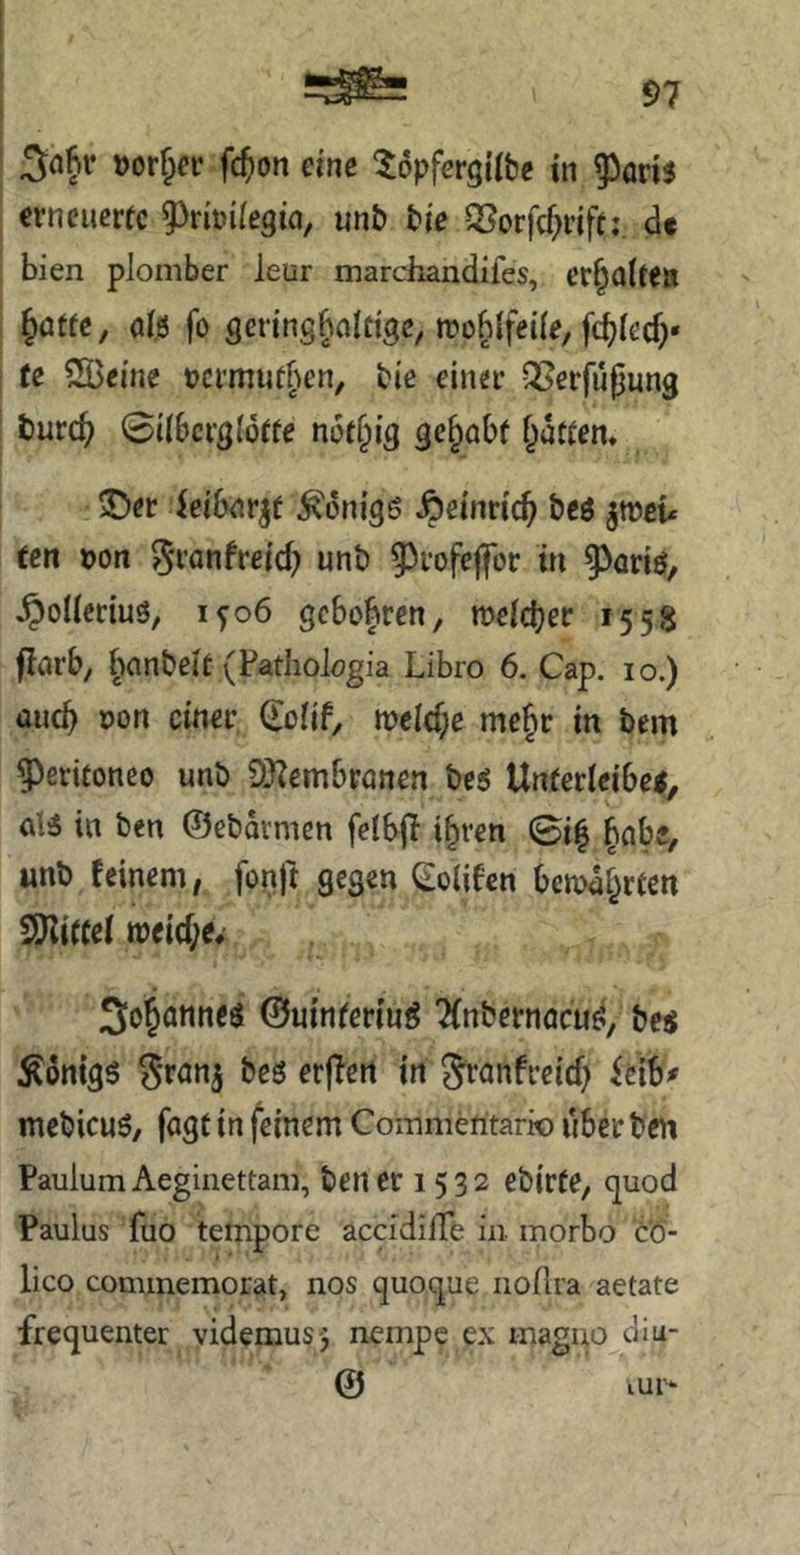 97
Jahr vorher schon eine Töpfergilde in Paris
erneuerte Privilegia, und die Vorschrift: de
bien plomber leur marchandiſes, erhalten
hatte, als so geringhaltige, wohlfeile, schlech-
te Weine vermuthen, die einer Versüßung
durch Silberglötte nöthig gehabt hätten.
Der Leibarzt Königs Heinrich des zwei-
ten von Frankreich und Professor in Paris,
Hollerius, 1506 gebohren, welcher 1558
starb, handelt (Pathologia Libro 6. Cap. 10.)
auch von einer Colik, welche mehr in dem
Peritoneo und Membranen des Unterleibes,
als in den Gedärmen selbst ihren Sitz habe,
und keinem, sonst gegen Coliken bewährten
Mittel weiche.
Johannes Guinterius Andernacus, des
Königs Franz des ersten in Frankreich Leib-
medicus, sagt in seinem Commentario über den
Paulum Aeginettam, den er 1532 edirte, quod
Paulus ſuo tempore accidiſſe in morbo co-
lico commemorat, nos quoque noſtra aetate
frequenter videmus; nempe ex magno diu-
G
tur-